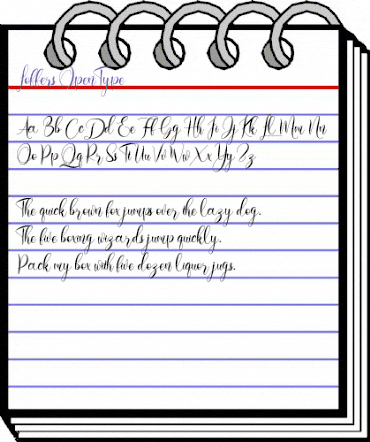 Joffers OpenType
Aa Bb Cc Dd Ee Ff Gg Hh Ii Jj Kk Ll Mm Nn
Oo Pp Qq Rr Ss Tt Uu Vv Ww Xx Yy Zz
The quick brown fox jumps over the lazy dog.
The five boxing wizards jump quickly.
Pack my box with five dozen liquor jugs.